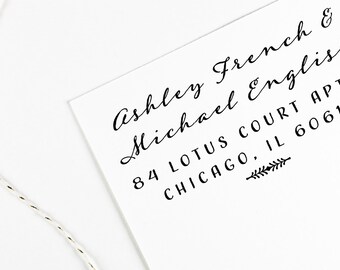 Ashley French &
Michael Englis
84 LOTUS COURT APT
CHICAGO, IL 6061